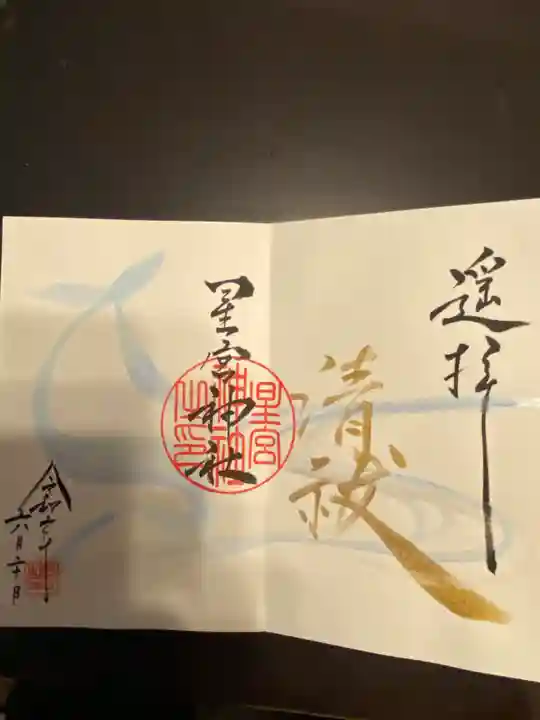 遥拝
清祓
星宮神社
星宮
神社
之印
六月二十日